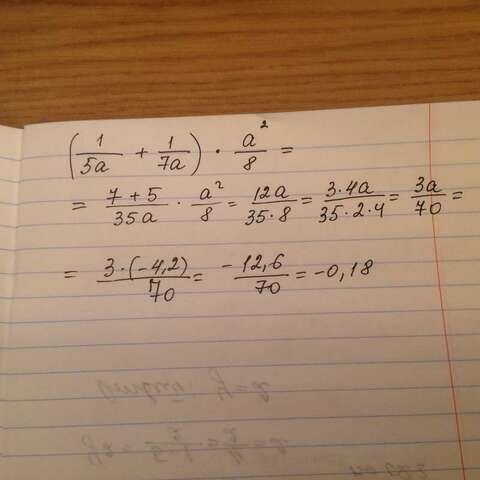 (1/5a + 1/7a) · a²/8 =
= 7+5/35a · a²/8 = 12a/35·8 = 3·4a/35·2·4 = 3a/70 =
= 3·(-4,2)/70 = -12,6/70 = -0,18